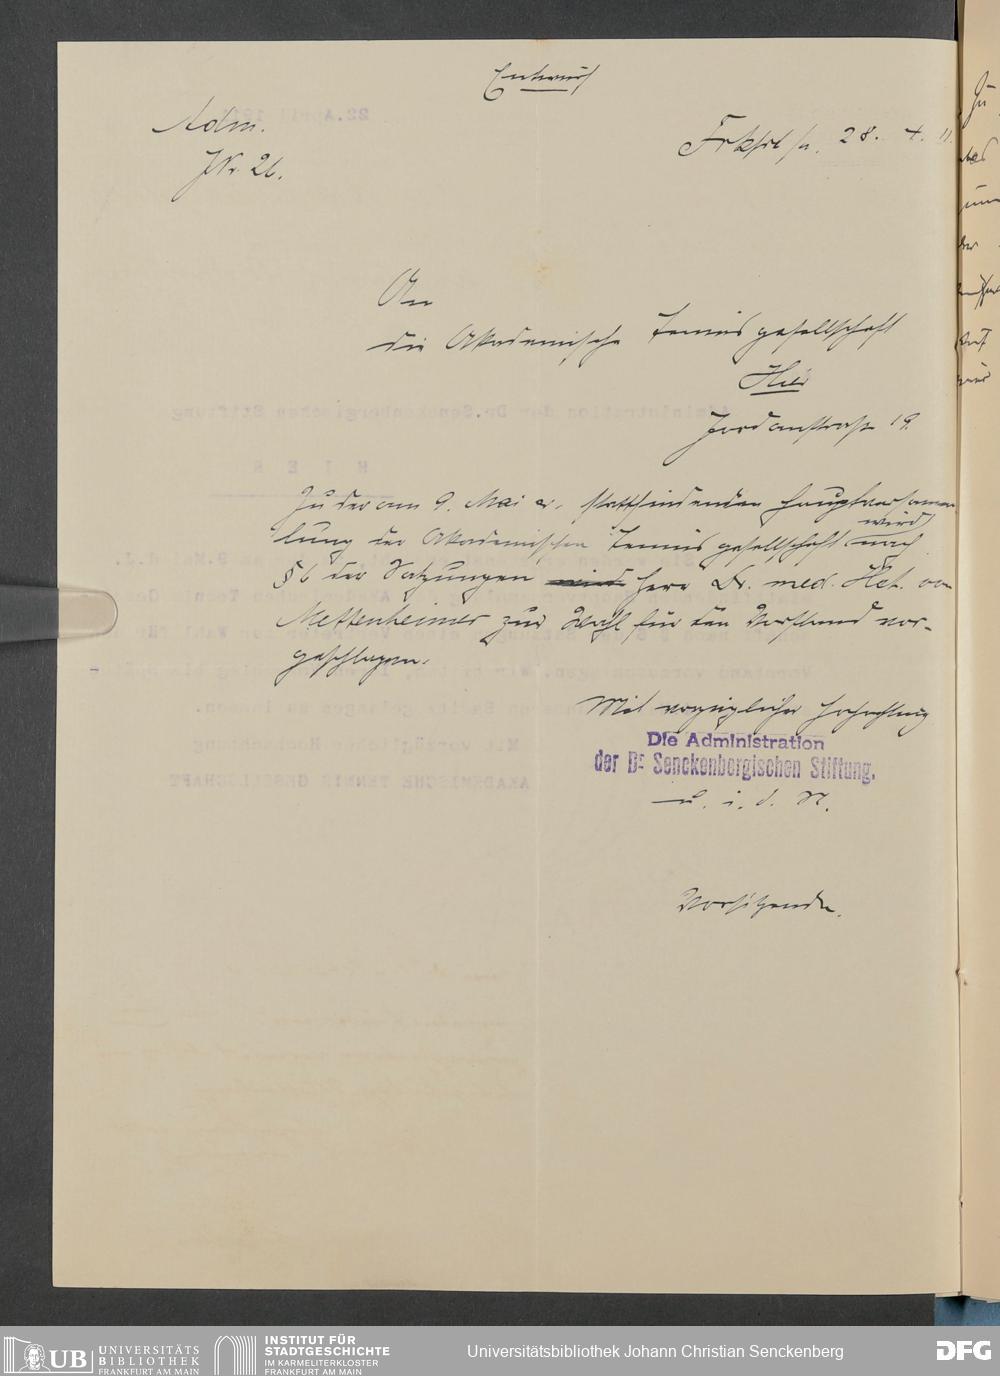 Entwurf
Adm.
JNr. 26.
Frkfrt /M. 28. 4. 11.
An
die Akademische Tennisgesellschaft
Hier
Jordanstrasse 19.
Zu der am 9. Mai cr. stattfindenden Hauptversamm-
lung der Akademischen Tennisgesellschaft wird nach
§ 6 der Satzungen Herr Dr. med. Hct. von
Mettenheimer zur Wahl für den Vorstand vor-
geschlagen.
Mit vorzüglicher Hochachtung
Die Administration
der Dr. Senckenbergischen Stiftung.
u. i. d. N.
Vorsitzender.
UB UNIVERSITÄTS
BIBLIOTHEK
FRANKFURT AM MAIN
INSTITUT FÜR
STADTGESCHICHTE
IM KARMELITERKLOSTER
FRANKFURT AM MAIN
Universitätsbibliothek Johann Christian Senckenberg
DFG